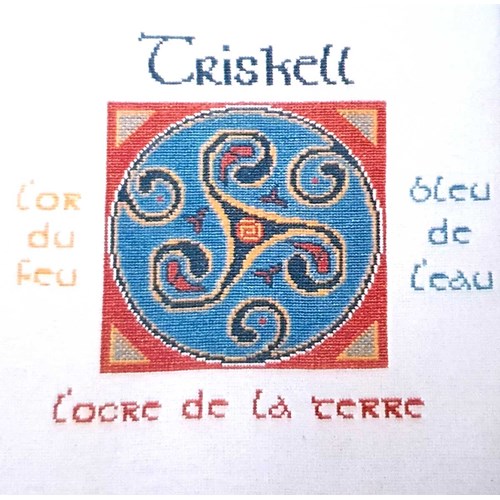 Triskell
l'or
du
feu
bleu
de
l'eau
l'ocre de la terre